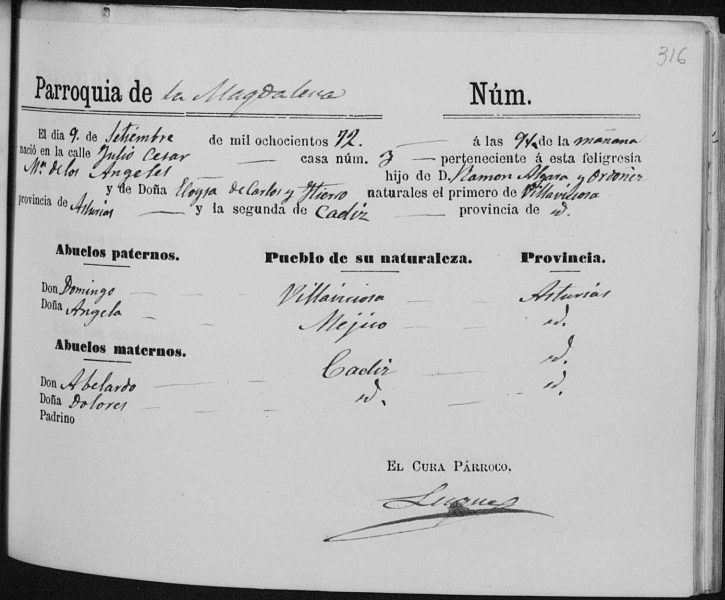 316
Parroquia de la Magdalena Núm.
El dia 9. de Setiembre de mil ochocientos 72. á las 9 de la mañana
nació en la calle Julio Cesar casa núm. 3 perteneciente á esta feligresía
Mª de los Angeles hijo de D. Ramon Algara y Ordoñez
y de Doña Eloysa de Carlos y Hierro naturales el primero de Villaviciosa
provincia de Asturias y la segunda de Cadiz provincia de id.
Abuelos paternos. Pueblo de su naturaleza. Provincia.
Don Domingo Villaviciosa Asturias
Doña Angela Mejico id.
Abuelos maternos.
Don Abelardo Cadiz id.
Doña Dolores id. id.
Padrino
EL CURA PÁRROCO,